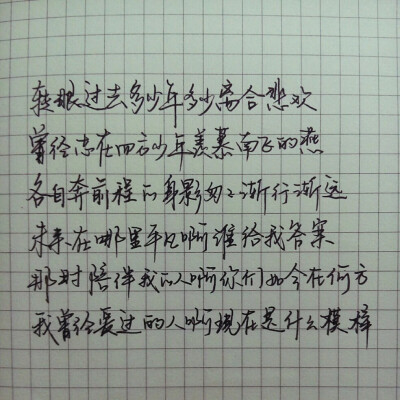 转眼过去多少年多少离合悲欢
曾经志在四方少年羡慕南飞的燕
各自奔前程的身影匆々渐行渐远
未来在哪里平凡啊谁给我答案
那时陪伴我的人啊你们如今在何方
我曾经爱过的人啊现在是什么模样